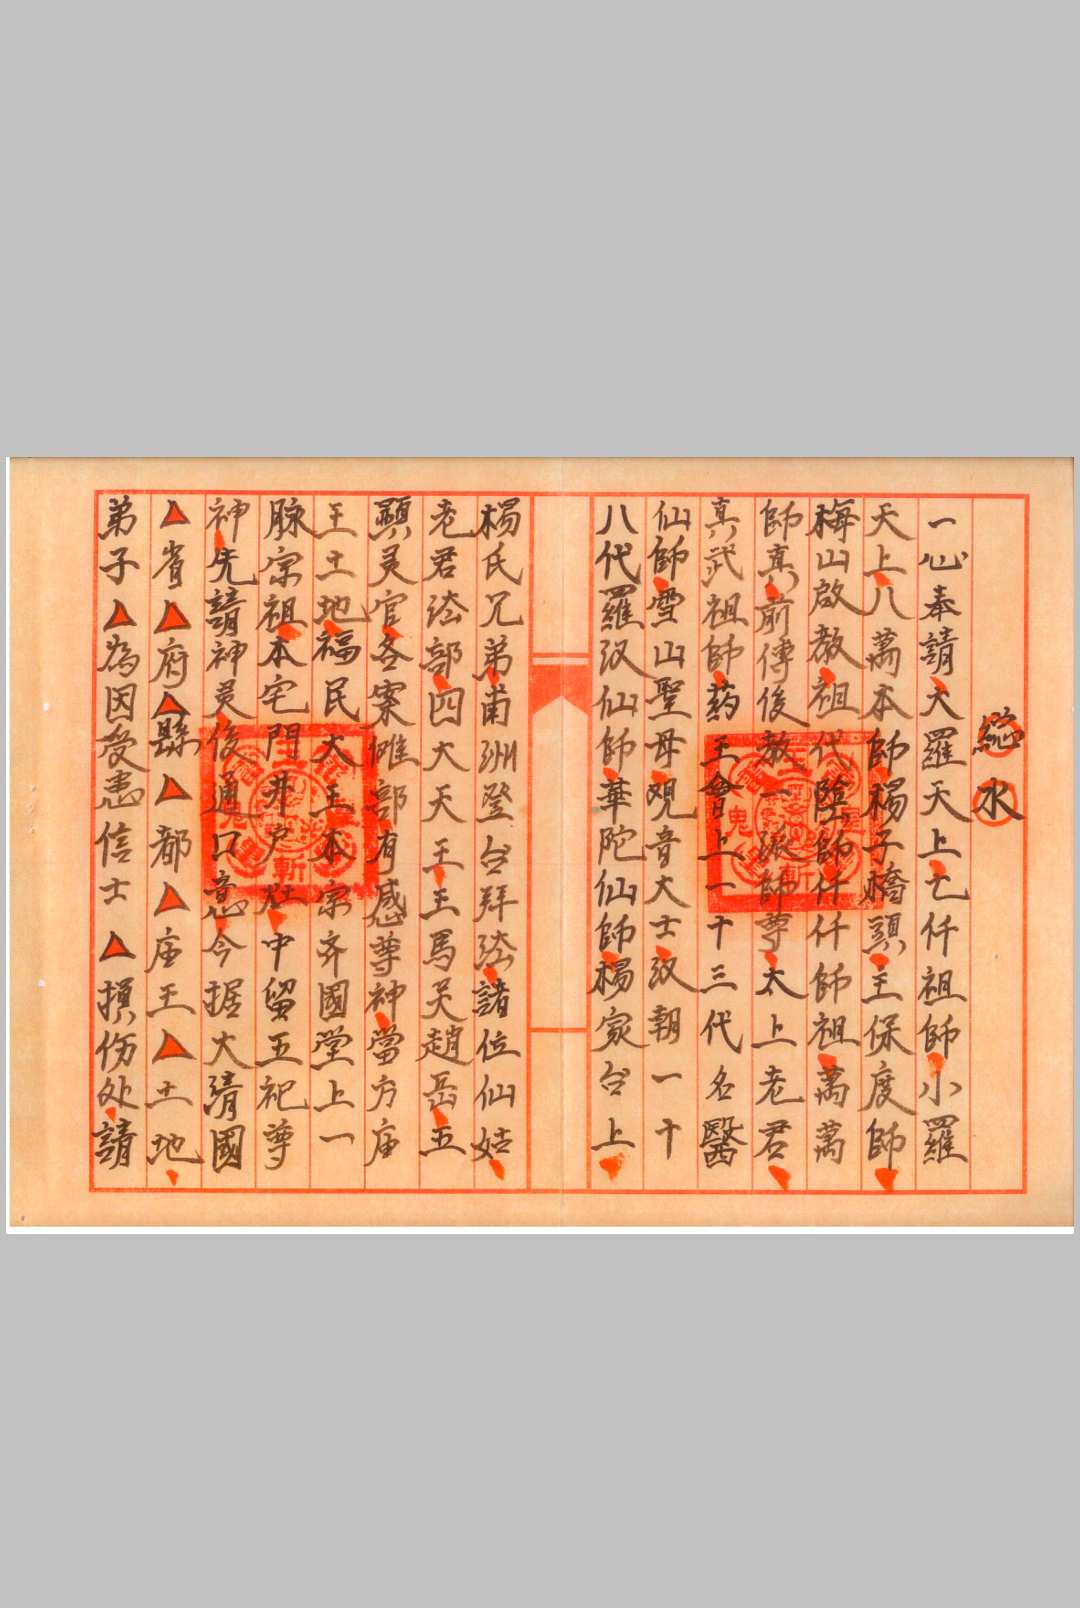 總水
一心奉請大羅天上七仟祖師小羅
天上八萬本師楊子橋頭主保度師
梅山啟教祖代陰師仟仟師祖萬萬
師真前傳後教一派師尊太上老君
真武祖師药王會上一十三代名醫
仙師雪山聖母观音大士汉朝一十
八代羅汉仙師華陀仙師楊家台上
楊氏兄弟甫洲登台拜法諸位仙姑
老君法部四大天王王馬灵趙岳五
顕灵官各案雄部有感尊神當方庙
王土地福民大王本宗齐國堂上一
脉宗祖本宅門井户灶中留五祀尊
神先請神灵後通口意今据大清國
△省△府△縣△都△庙王△土地
弟子△為因受患信士△損伤处請
斬
鬼
斬